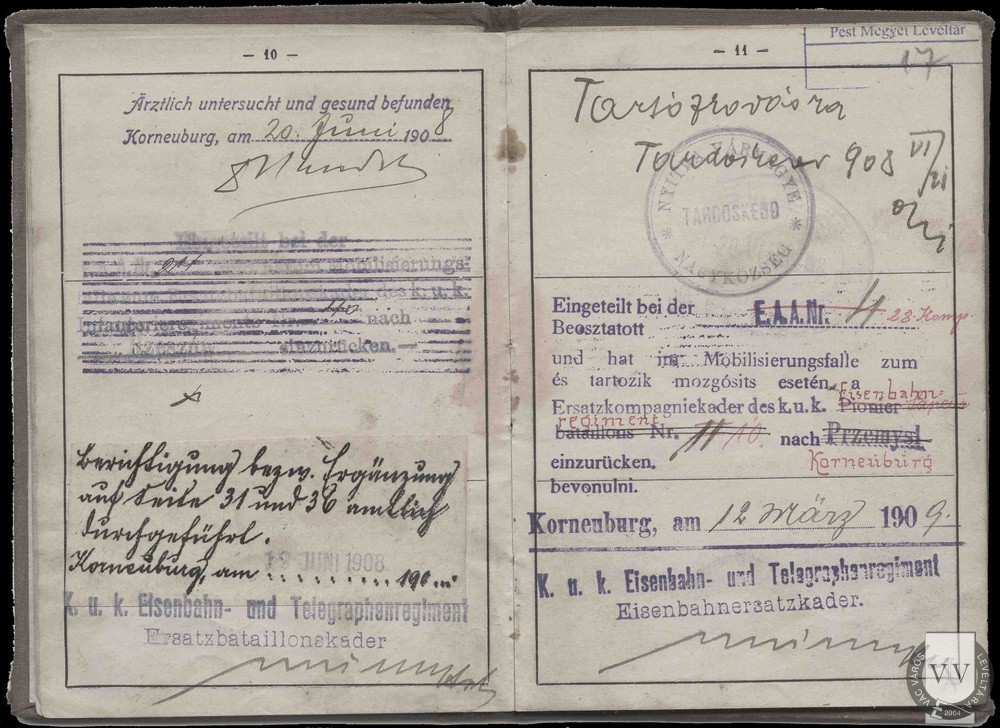 — 10 —
Ärztlich untersucht und gesund befunden
Korneuburg, am 20. Juni 1908
Eingeteilt bei der
Mobilisierungs-
des k. u. k.
Infanterieregiments Nr. nach
Rzeszów einzurücken.—
Berichtigung bezw. Ergänzung
auf Seite 31 und 36 amtlich
durchgeführt.
Korneuburg, am 19 JUNI 1908 190
K. u. k. Eisenbahn- und Telegraphenregiment
Ersatzbataillonskader
— 11 —
Pest Megyei Levéltár
17
908 VI/
NYITRA VÁRMEGYE
TARDOSKEDD
NAGYKÖZSÉG
Eingeteilt bei der E.A.A.Nr. 28. Komp
Beosztatott
und hat im Mobilisierungsfalle zum
és tartozik mozgósits esetén a
Eisenbahn-
Ersatzkompagniekader des k.u.k. Pionier
regiment
bataillons Nr. nach Przemysl
einzurücken. Korneuburg
bevonulni.
Korneuburg, am 12 März 1909.
K. u. k. Eisenbahn- und Telegraphenregiment
Eisenbahnersatzkader.
VÁC VÁROS LEVÉLTÁRA
VV
2004